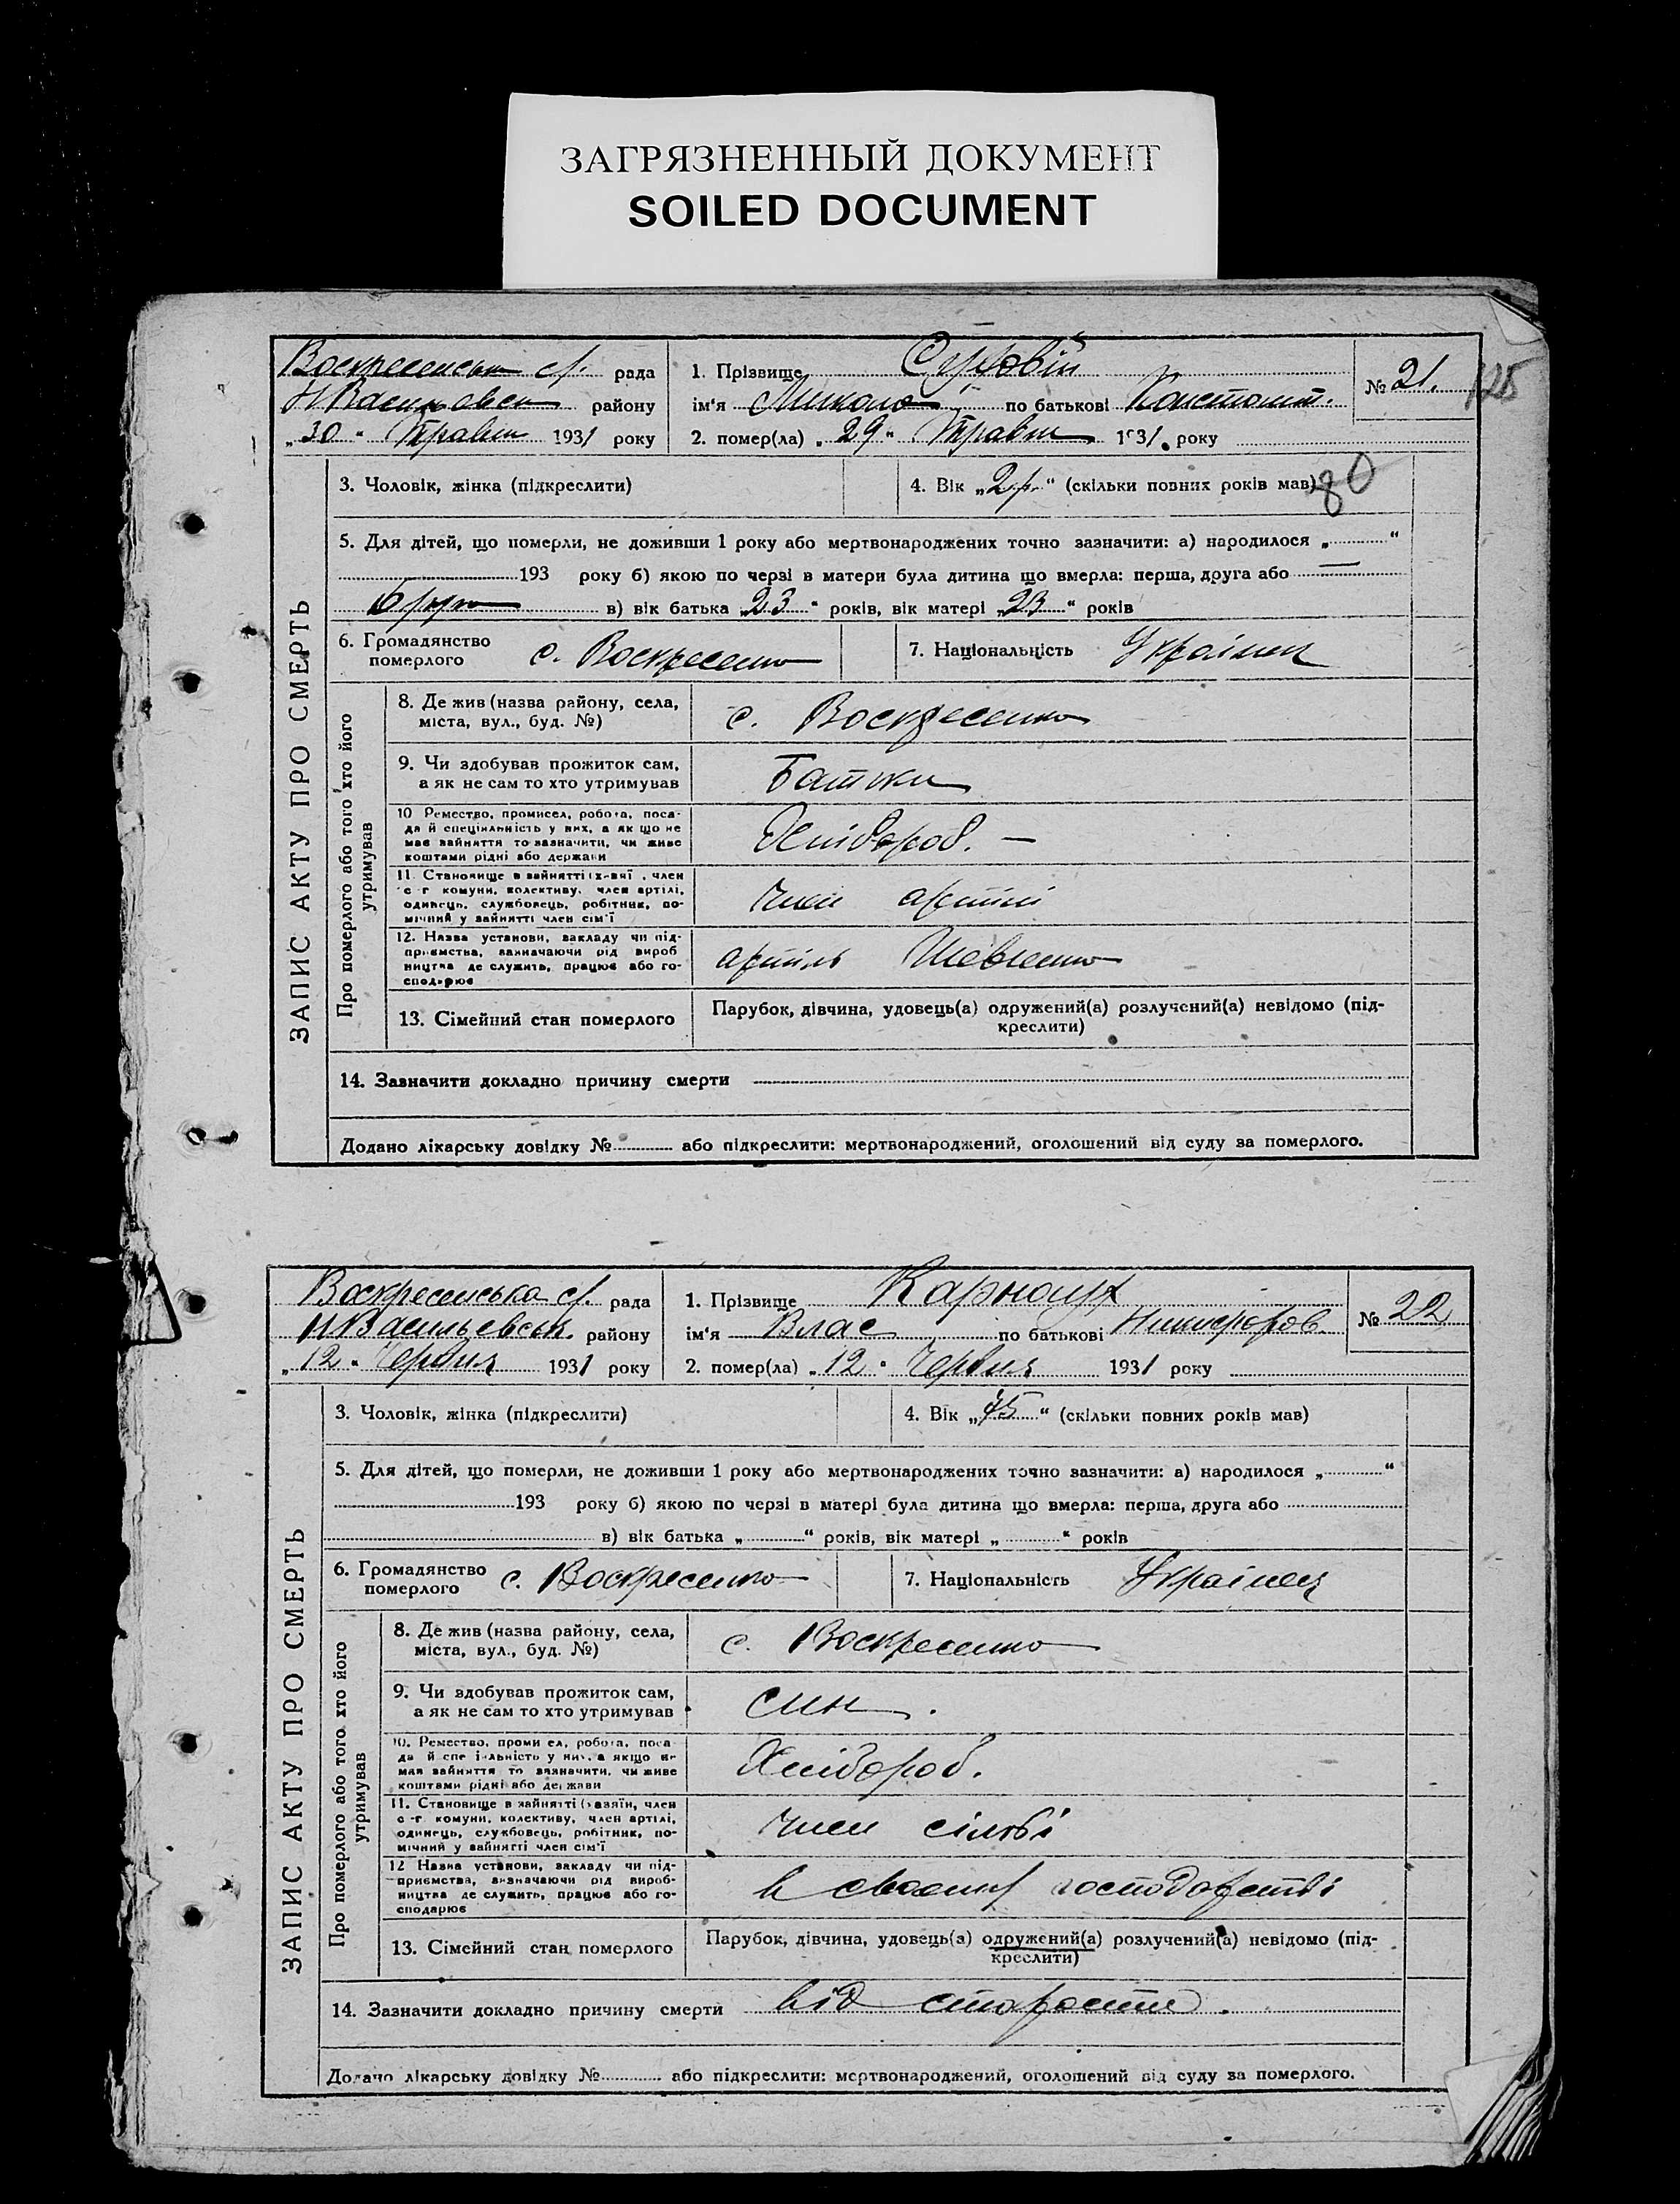 ЗАГРЯЗНЕННЫЙ ДОКУМЕНТ
SOILED DOCUMENT
Воскресенська с/. рада
Н Васильевськ району
„30“ Травня 1931 року
1. Прізвище
ім‘я Микола по батькові Констант.
2. помер(ла) „29“ Травня 1931. року
№ 21.
125
3. Чоловік, жінка (підкреслити)
4. Вік „2 р.“ (скільки повних років мав)
80
5. Для дітей, що померли, не доживши 1 року або мертвонароджених точно зазначити: а) народилося „ “
193 року б) якою по черзі в матери була дитина що вмерла: перша, друга або —
в) вік батька „23“ років, вік матері „23“ років
6. Громадянство померлого с. Воскресенка
7. Національність Українец
ЗАПИС АКТУ ПРО СМЕРТЬ
Про померлого або того хто його утримував
8. Де жив (назва району, села,
міста, вул., буд. №)
с. Воскресенка
9. Чи здобував прожиток сам,
а як не сам то хто утримував
Батьки
10 Ремество, промисел, робота, поса-
да й спеціяльність у них, а як що не
має зайняття то зазначити, чи живе
коштами рідні або держави
Хлібороб. —
11. Становище в зайнятті (х-зяї, член
с-г комуни, колективу, член артілі,
одинець, службовець, робітник, по-
мічний у зайнятті член сім‘ї
Член артілі
12. Назва установи, закладу чи під-
приємства, зазначаючи рід вироб
ництва де служить, працює або го-
сподарює
артіль Шевченко
13. Сімейний стан померлого
Парубок, дівчина, удовець(а) одружений(а) розлучений(а) невідомо (під-
креслити)
14. Зазначити докладно причину смерти
Додано лікарську довідку № або підкреслити: мертвонароджений, оголошений від суду за померлого.
Воскресенська с/. рада
Н Васильевськ. району
„12“ Червня 1931 року
1. Прізвище Карнаух
ім‘я Влас по батькові Никифоров.
2. помер(ла) „12“ Червня 1931 року
№ 22
3. Чоловік, жінка (підкреслити)
4. Вік „75“ (скільки повних років мав)
5. Для дітей, що померли, не доживши 1 року або мертвонароджених точно зазначити: а) народилося „ “
193 року б) якою по черзі в матері була дитина що вмерла: перша, друга або
в) вік батька „ “ років, вік матері „ “ років
6. Громадянство померлого с. Воскресенка
7. Національність Українец
ЗАПИС АКТУ ПРО СМЕРТЬ
Про померлого або того хто його утримував
8. Де жив (назва району, села,
міста, вул., буд. №)
с. Воскресенка
9. Чи здобував прожиток сам,
а як не сам то хто утримував
син.
10. Ремество, промисел, робота, поса-
да й спеціяльність у них, а якщо не
має зайняття то зазначити, чи живе
коштами рідні або держави
Хлібороб.
11. Становище в зайнятті (хазяїн, член
с-г комуни, колективу, член артілі,
одинець, службовець, робітник, по-
мічний у зайнятті член сім‘ї
Член
12 Назва установи, закладу чи під-
приємства, зазначаючи рід вироб-
ництва де служить, працює або го-
сподарює
в своему господарстві
13. Сімейний стан померлого
Парубок, дівчина, удовець(а) одружений(а) розлучений(а) невідомо (під-
креслити)
14. Зазначити докладно причину смерти від старости.
Додано лікарську довідку № або підкреслити: мертвонароджений, оголошений від суду за померлого.